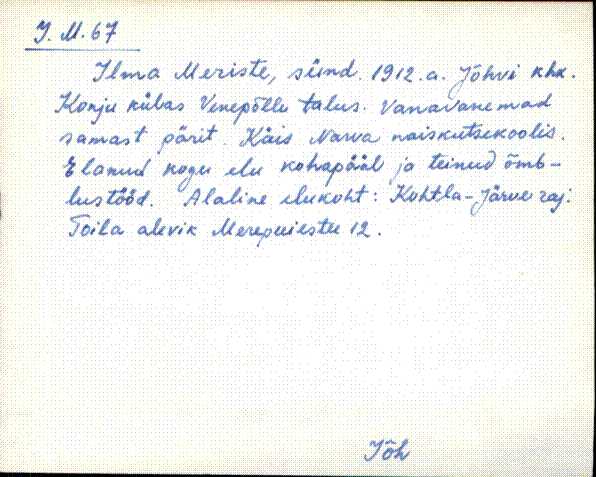 I. M. 67
Ilma Meriste, sünd. 1912. a. Jõhvi khk.
Konju külas Venepõllu talus. Vanavanemad
samast pärit. Käis Narva naiskutsekoolis.
Elanud kogu elu kohapääl ja teinud õmb-
lustööd. Alaline elukoht: Kohtla-Järve raj.
Toila alevik Merepuiestee 12.
Jõh